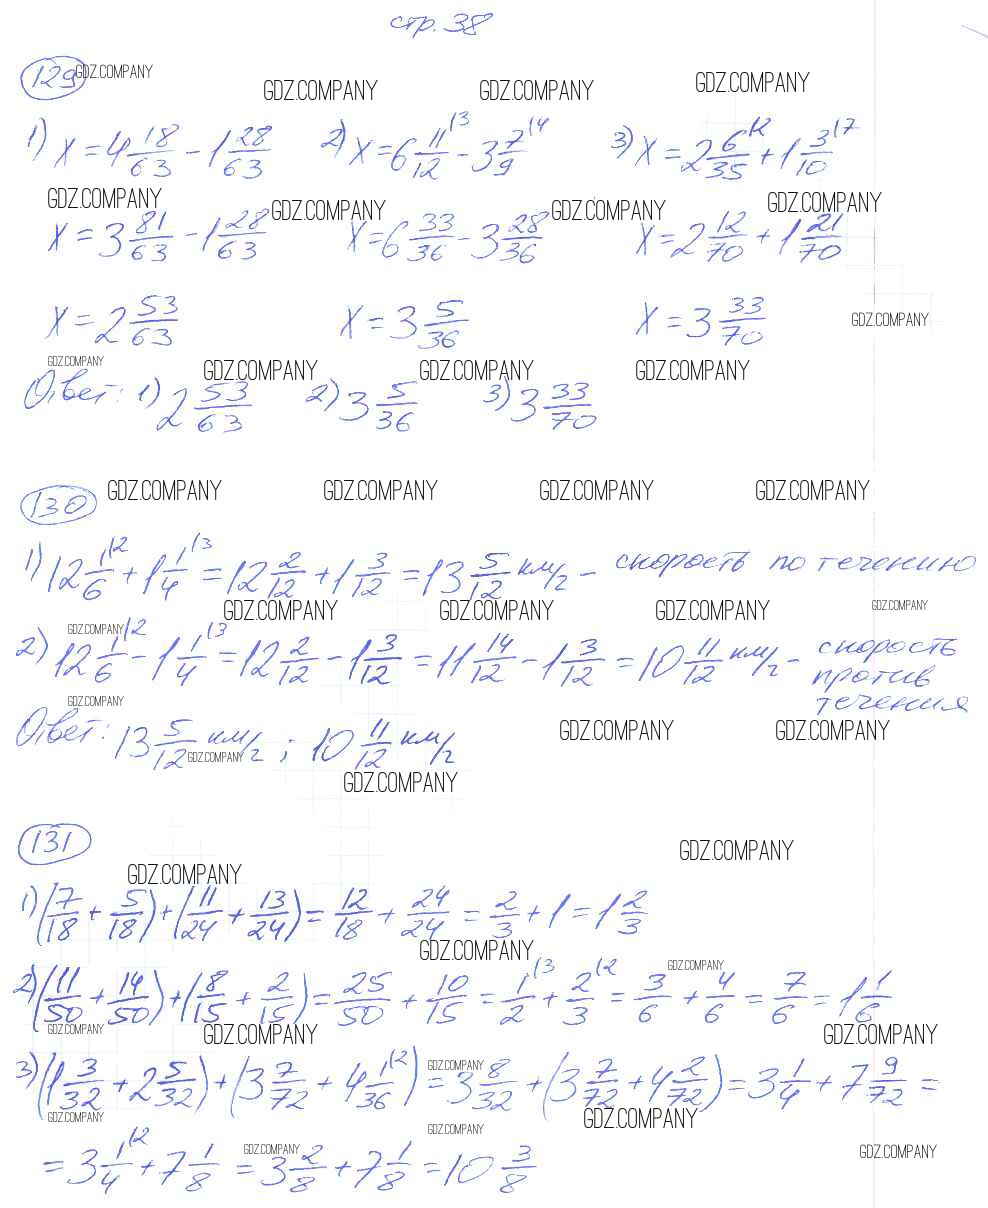 стр. 38
129 GDZ.COMPANY GDZ.COMPANY GDZ.COMPANY GDZ.COMPANY
1) x = 4 18/63 - 1 28/63 2) x = 6 11/12 \3 - 3 7/9 \4 3) x = 2 6/35 \2 + 1 3/10 \7
GDZ.COMPANY GDZ.COMPANY GDZ.COMPANY GDZ.COMPANY
x = 3 81/63 - 1 28/63 x = 6 33/36 - 3 28/36 x = 2 12/70 + 1 21/70
x = 2 53/63 x = 3 5/36 x = 3 33/70 GDZ.COMPANY
GDZ.COMPANY GDZ.COMPANY GDZ.COMPANY GDZ.COMPANY
Ответ: 1) 2 53/63 2) 3 5/36 3) 3 33/70
130 GDZ.COMPANY GDZ.COMPANY GDZ.COMPANY GDZ.COMPANY
1) 12 1/6 \2 + 1 1/4 \3 = 12 2/12 + 1 3/12 = 13 5/12 км/ч - скорость по течению
GDZ.COMPANY GDZ.COMPANY GDZ.COMPANY GDZ.COMPANY
GDZ.COMPANY
2) 12 1/6 \2 - 1 1/4 \3 = 12 2/12 - 1 3/12 = 11 14/12 - 1 3/12 = 10 11/12 км/ч - скорость
против
GDZ.COMPANY течения
Ответ: 13 5/12 км/ч ; 10 11/12 км/ч GDZ.COMPANY GDZ.COMPANY
GDZ.COMPANY
GDZ.COMPANY
131 GDZ.COMPANY
GDZ.COMPANY
1) (7/18 + 5/18) + (11/24 + 13/24) = 12/18 + 24/24 = 2/3 + 1 = 1 2/3
GDZ.COMPANY GDZ.COMPANY
2) (11/50 + 14/50) + (8/15 + 2/15) = 25/50 + 10/15 = 1/2 \3 + 2/3 \2 = 3/6 + 4/6 = 7/6 = 1 1/6
GDZ.COMPANY GDZ.COMPANY GDZ.COMPANY
GDZ.COMPANY
3) (1 3/32 + 2 5/32) + (3 7/72 + 4 1/36 \2) = 3 8/32 + (3 7/72 + 4 2/72) = 3 1/4 + 7 9/72 =
GDZ.COMPANY GDZ.COMPANY
GDZ.COMPANY
GDZ.COMPANY GDZ.COMPANY
= 3 1/4 \2 + 7 1/8 = 3 2/8 + 7 1/8 = 10 3/8